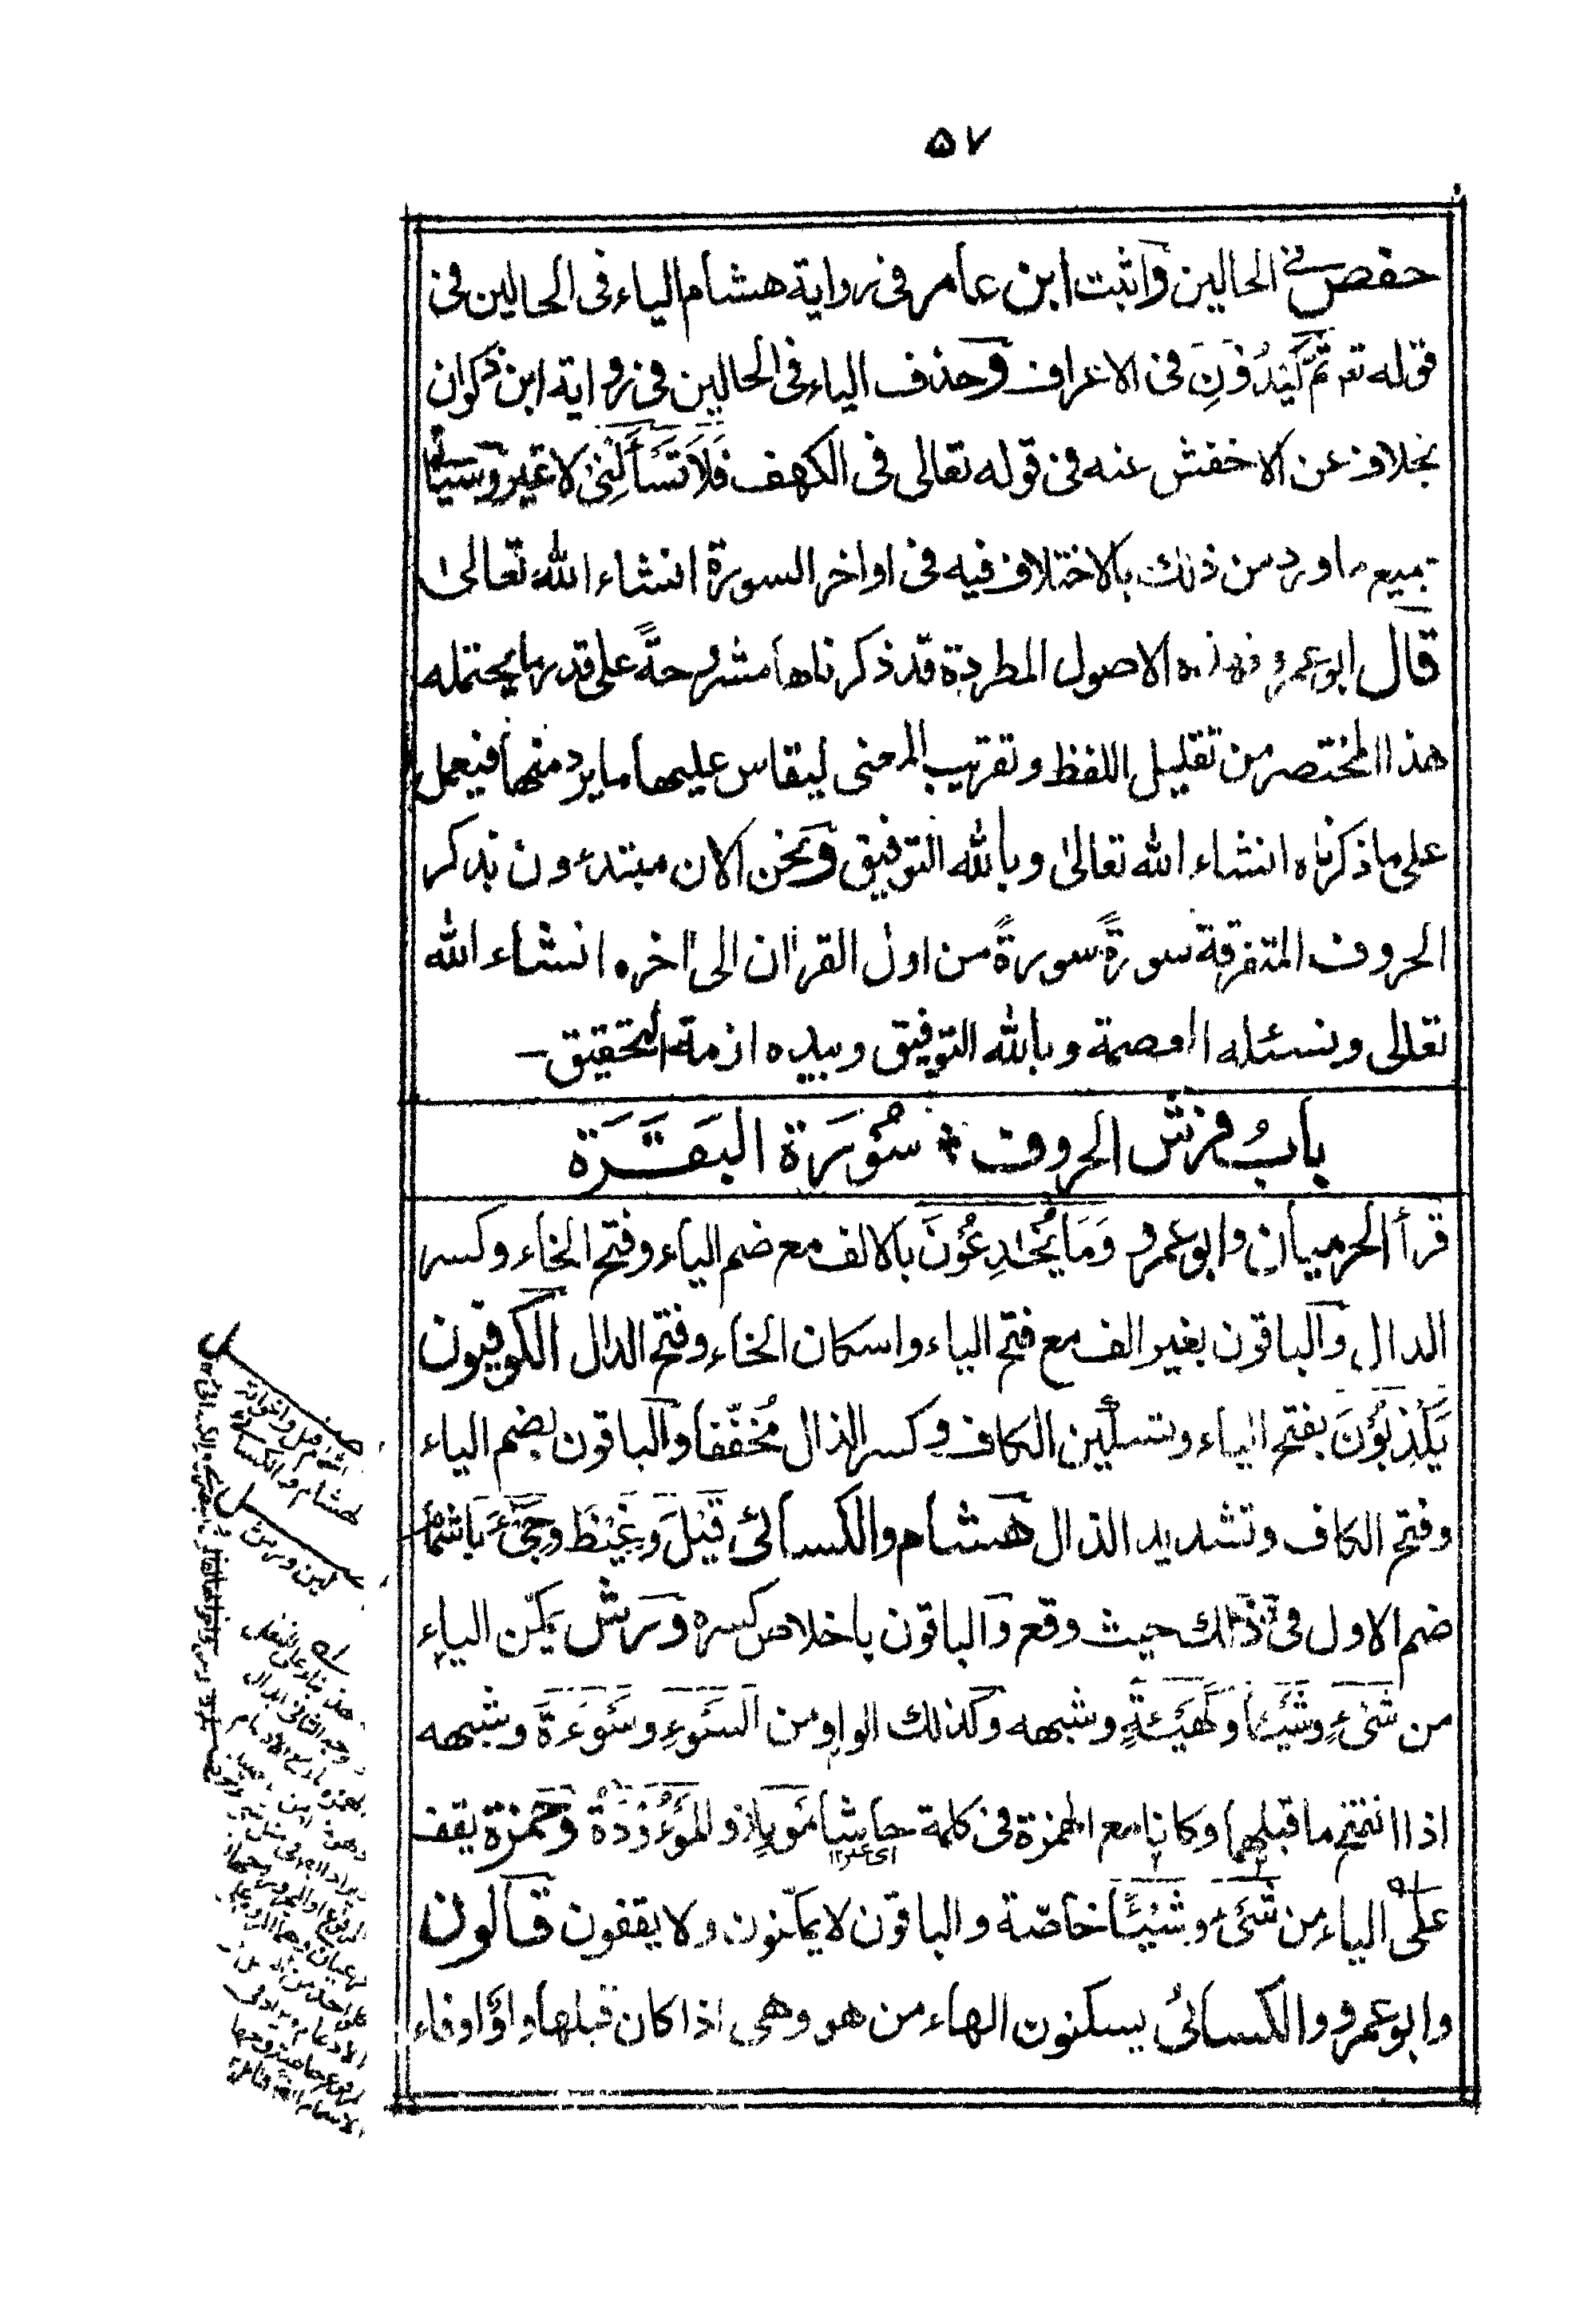 ٥٧
حفص في الحالين وأثبت ابن عامر فى رواية هشام الياء فى الحالين فى
قوله تعـ ثُمَّ كِيْدُوْنِ فى الاعراف وحذف الياء فى الحالين فى رواية ابن ذكوان
بخلاف عن الاخفش عنه فى قوله تعالى فى الكهف فَلَا تَسْأَلْنِىْ لا غير وسيأتى
جميع ما ورد من ذلك بالاختلاف فيه فى اواخر السورة انشاء الله تعالىٰ
قال ابو عمرو فهذه الاصول المطردة قد ذكرناها مشروحةً على قدر ما يحتمله
هذا المختصر من تقليل اللفظ وتقريب المعنى ليقاس عليها ما يرد منها فيعمل
على ما ذكرناه انشاء الله تعالىٰ وبالله التوفيق ونحن الان مبتدءون بذكر
الحروف المتفرقة سورةً سورةً من اول القرآن الى اٰخره انشاء الله
تعالى ونسئله العصمة وبالله التوفيق وبيده ازمة التحقيق ـ
بابُ فرش الحروف * سُوْرَة البَقَرَة
قرأ الحرميان وابو عمرو وَمَا يُخٰدِعُوْنَ بالالف مع ضم الياء وفتح الخاء وكسر
الدال والباقون بغير الف مع فتح الياء واسكان الخاء وفتح الدال الكوفيون
يَكْذِبُوْنَ بفتح الياء وتسكين الكاف وكسر الذال مُخفّفا والباقون بضم الياء
وفتح الكاف وتشديد الذال هشام والكسائى قِيْلَ وَغِيْضَ وَجِىْءَ باشمام
ضم الاول فى ذٰلك حيث وقع والباقون باخلاص كسره وورش يمكّن الياء
من شَىْءٍ وشَيْئًا وكَهَيْئَةِ وشبهه وكذلك الواو من السَّوْءِ وسَوْءَةَ وشبهه
اذا انفتح ما قبلهما وكانا مع الهمزة فى كلمة حاشا مَوْئِلًا والمَوْءُوْدَةُ وحمزة يقف
على الياء من شَىْءٍ وشَيْئًا خاصّة والباقون لا يمكّنون ولا يقفون قالون
وابو عمرو والكسائىُ يسكنون الهاء من هو وهى اذا كان قبلها واوٌ او فاء